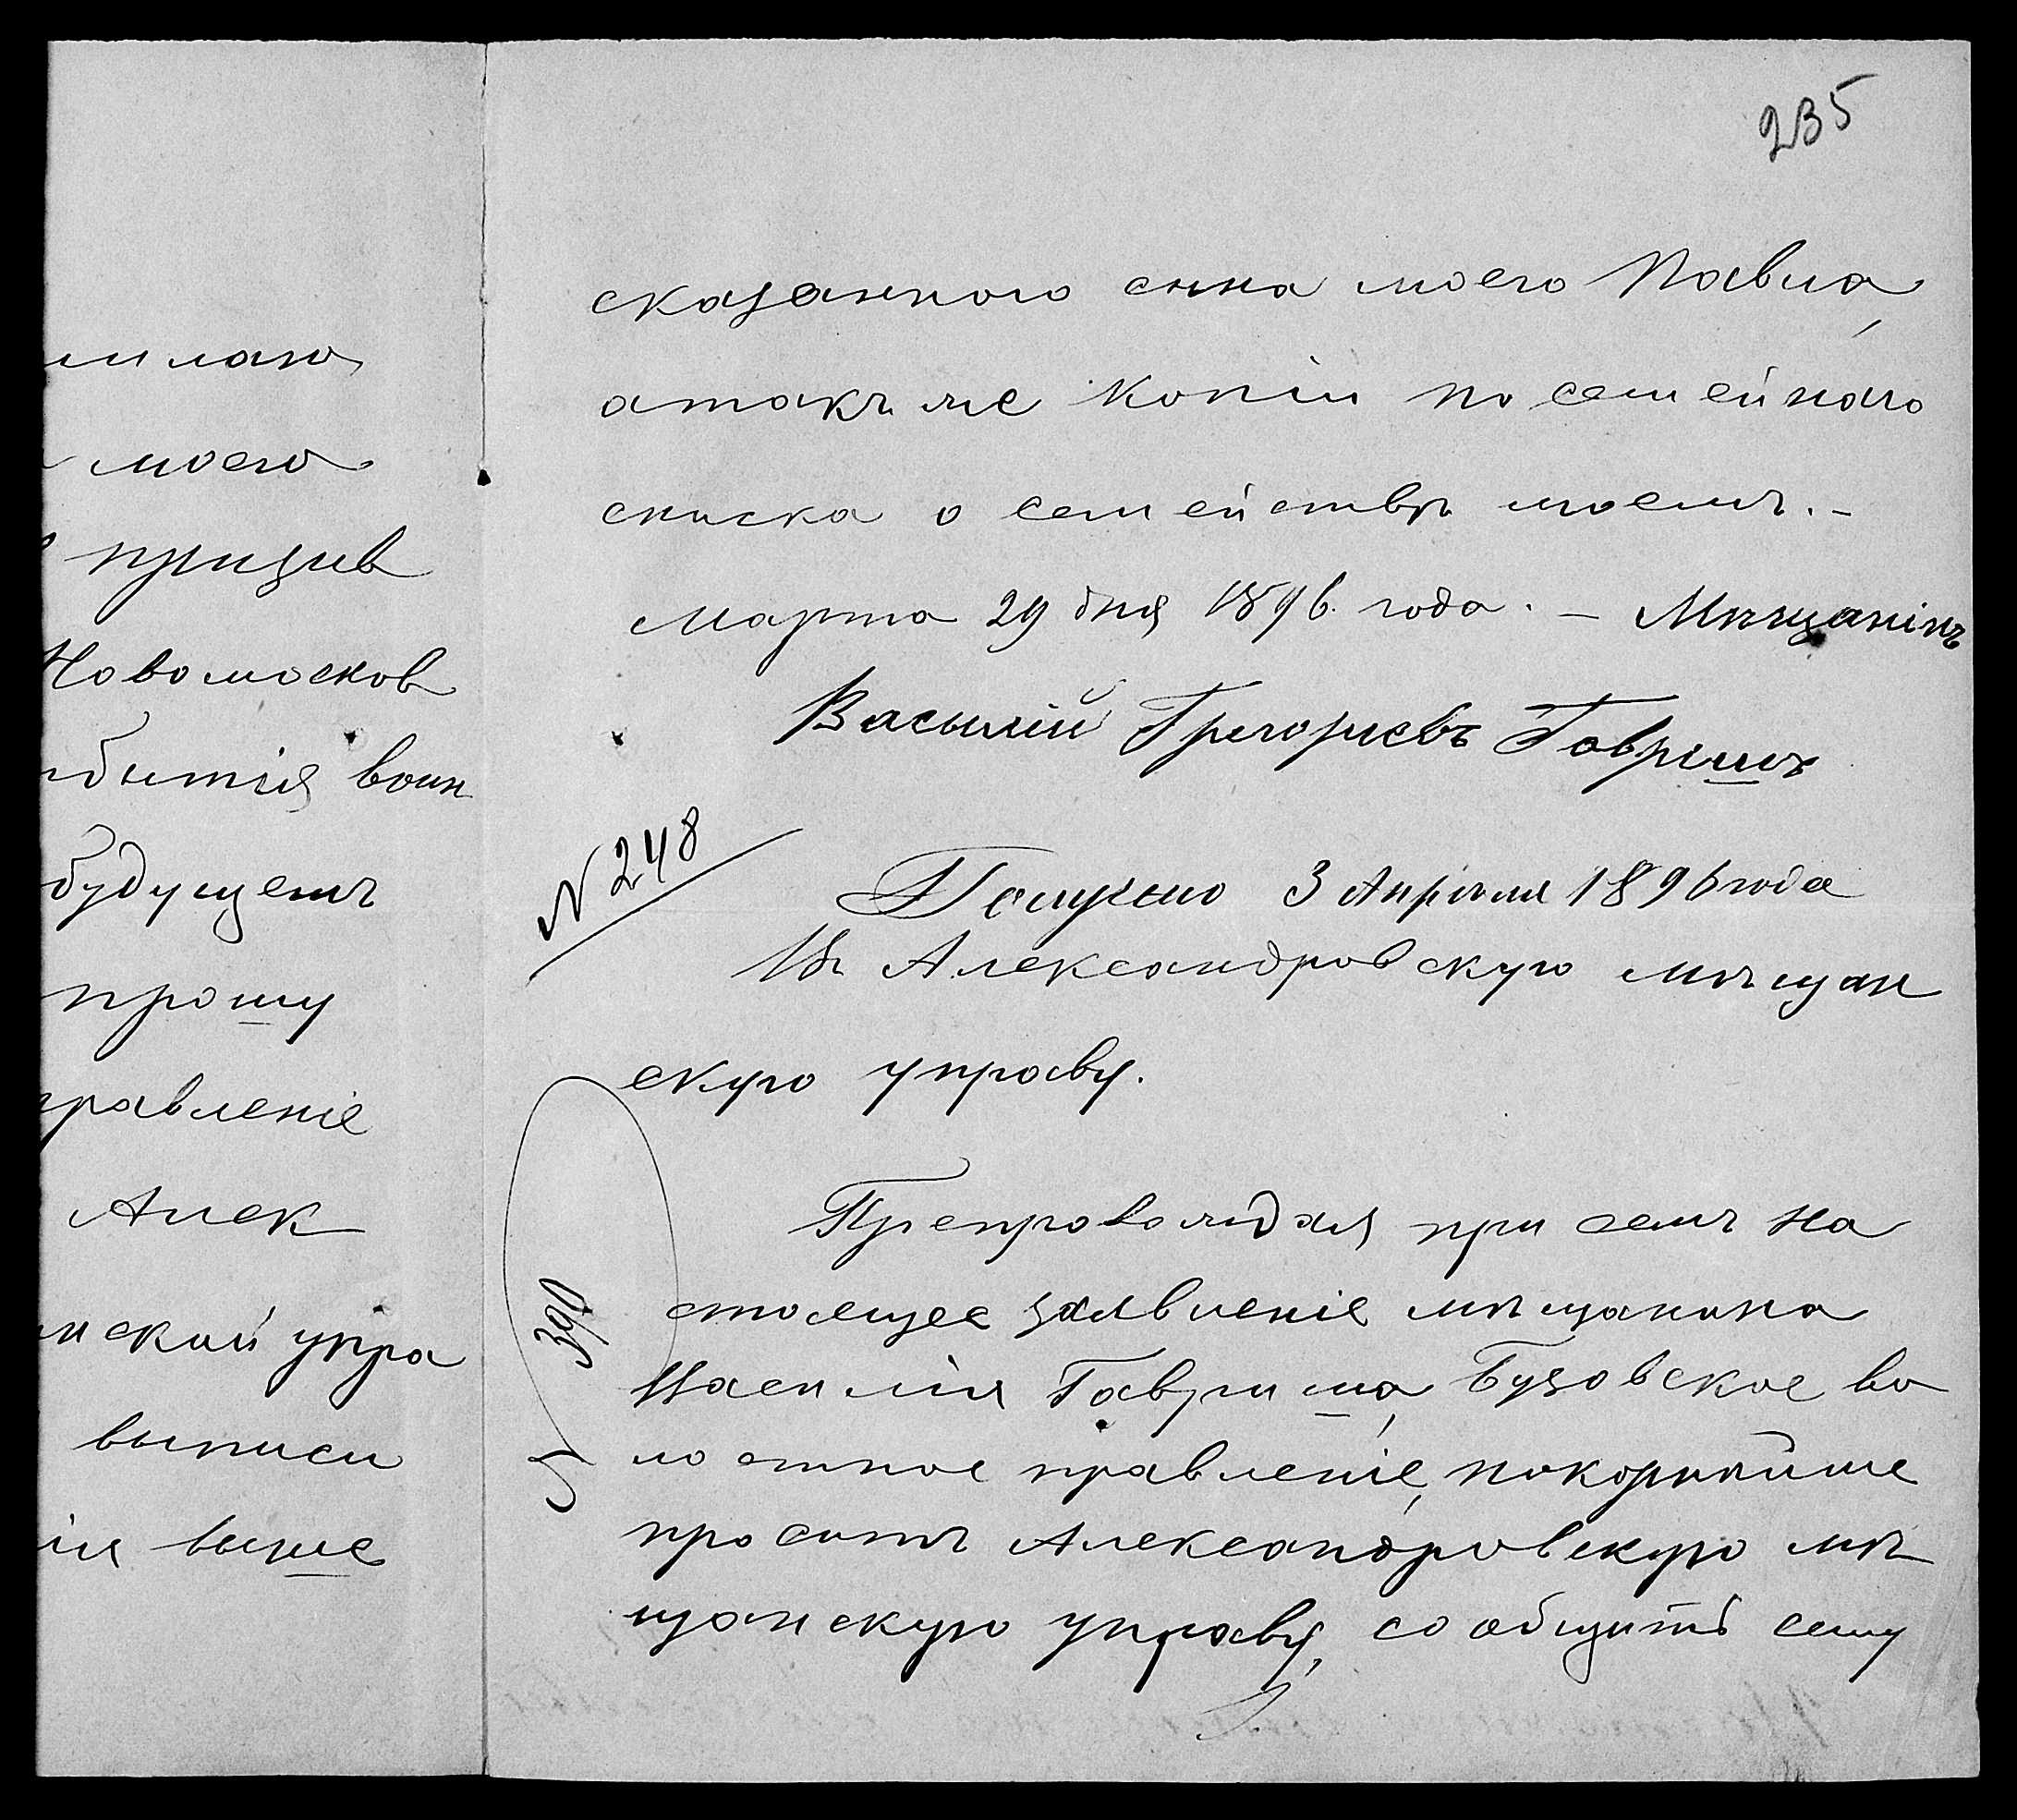 235
милаю
моего
призыв
Новомосков
бытія воин
будущемъ
прошу
правленіе
Алек
нской упра
выписи
ія выше
сказанного сына моего Павла,
атакъ же копіи посемейнаго
списка о семействѣ моемъ.-
Марта 29 дня 1896. года. - Мѣщанінъ
Васылій Григориевъ Гавришъ
N 248
Получено 3 Апрѣля 1896 года
Въ Александровскую мѣщан
скую управу.
Препровождая при семъ на
стоящее заявленіе мѣщанина
Василія Гавриша, Бузовское во
лостное правленіе, покорнѣйше
проситъ Александровскую мѣ
щанскую управу, сообщить сему
390
5